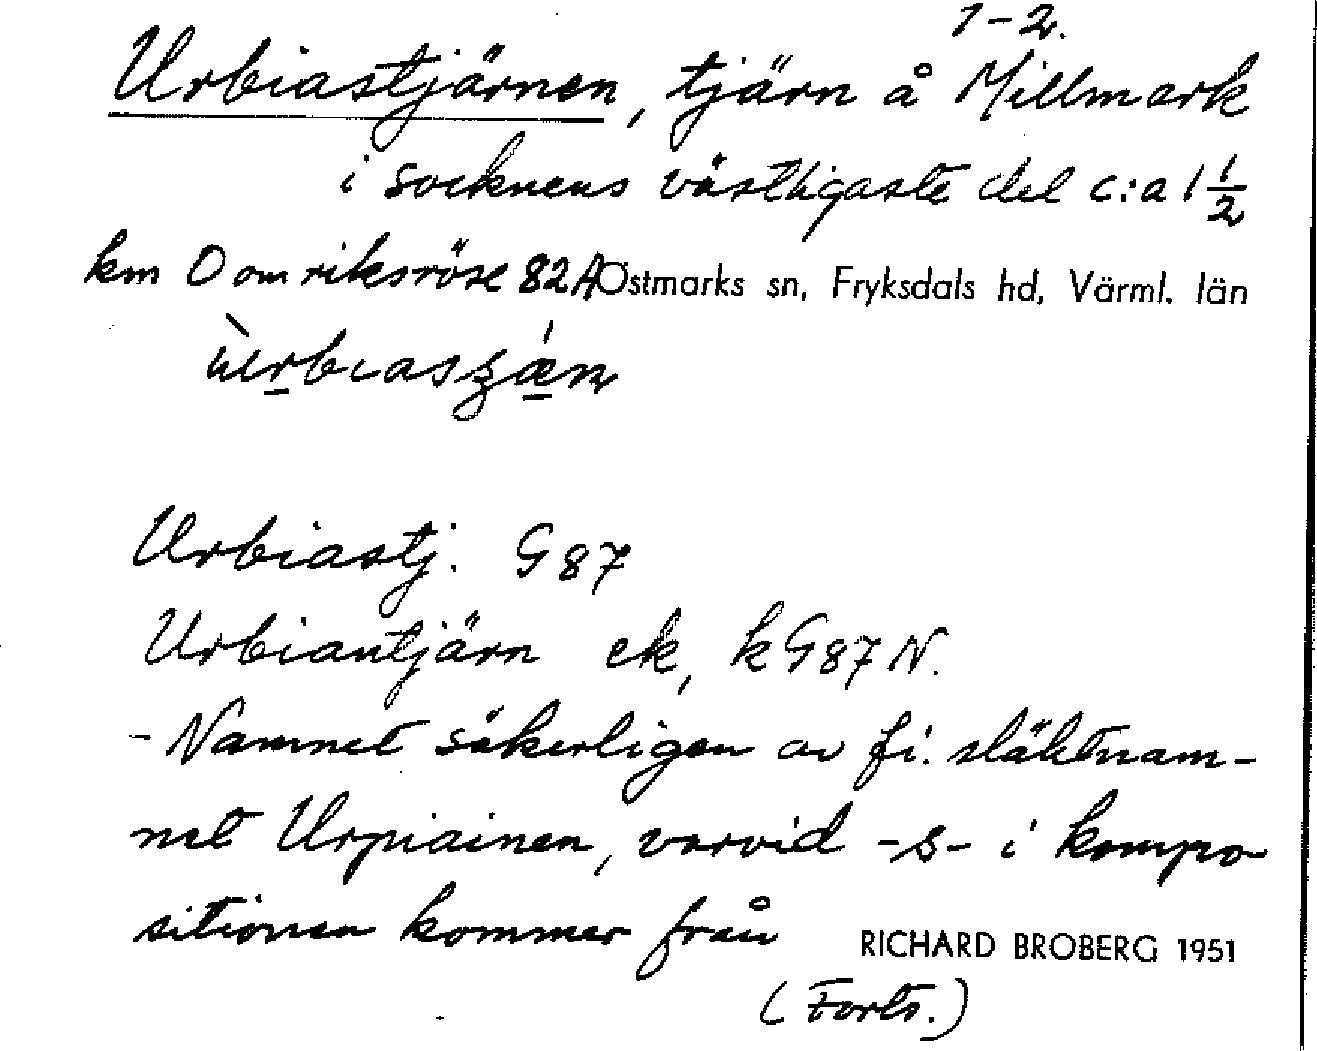 1-2.
Urbiastjärnen, tjärn å Millmark
i socknens västligaste del c:a 1 1/2
km O om riksröse 82A Östmarks sn, Fryksdals hd, Värml. län
Urbiastj. G87
Urbiantjärn ek, kG87N.
- Namnet säkerligen av fi. släktnam-
net Urpiainen, varvid -s- i kompo-
sitionen kommer från
RICHARD BROBERG 1951
(Forts.)